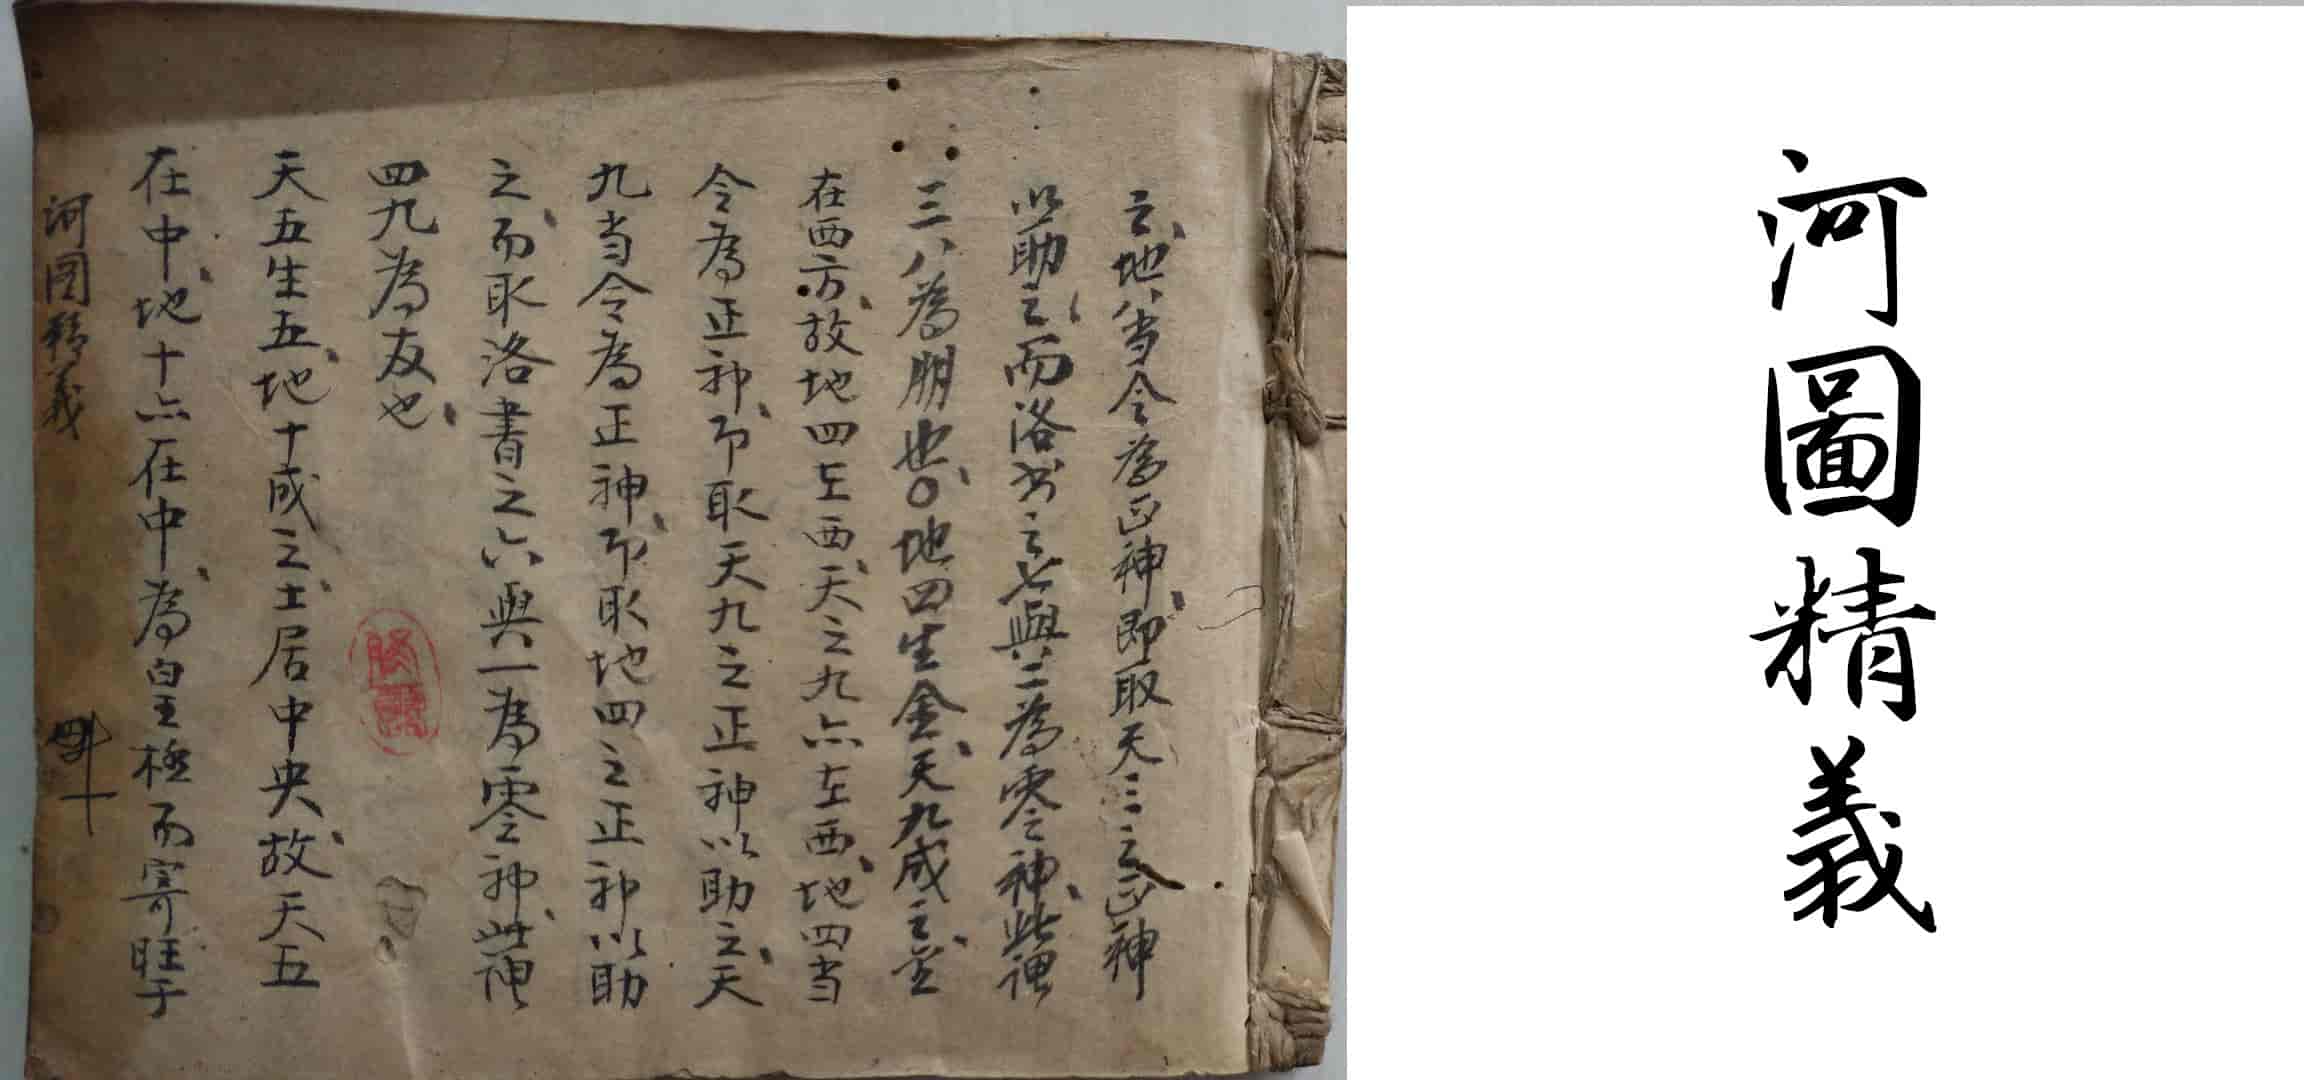 之地八当令為正神即取天三之正神
以助之而洛书之七與二為零神此谓
三八為朋也〇地四生金天九成之金
在西方故地四在西天之九亦在西地四当
令為正神即取天九之正神以助之天
九当令為正神即取地四之正神以助
之而取洛書之六與一為零神此谓
四九為友也
天五生五地十成之土居中央故天五
在中地十亦在中為皇极而寄旺于
河圖精義
河圖精義